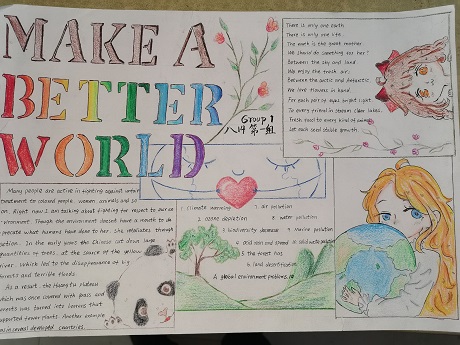 MAKE A
BETTER
WORLD
Group 1
八14 第一组
There is only one earth
There is only one life.
The earth is the great mother.
We should do something for her?
Between the sky and land
We enjoy the fresh air.
Between the arctic and Antarctic.
We love flowers in hand.
For each pair of eyes bright light.
To every friend in stream clear lakes.
Fresh soil to every kind of animal
Let each seed stable growth.
Many people are active in fighting against unfair
treatment to colored people, women, animals and so
on. Right now I am talking about fighting for respect to our en
vironment. Though the environment doesnt have a mouth to de
precate what humans have done to her. She retaliates through
action. In the early years the Chinese cut down large
quantities of trees, at the source of the yellow
river. Which led to the disappearance of big
forests and terrible floods.
As a result, the Huangtu plateau
which was once covered with
forests was turned into
supported fewer plants. Another example
in several developed countries.
1. climate warming
2. ozone depletion
3. biodiversity decrease
4. acid rain and
5. the forest
6. land desertification
7. air pollution
8. water pollution
9. Marine pollution
10. solid waste pollution
A global environment problems